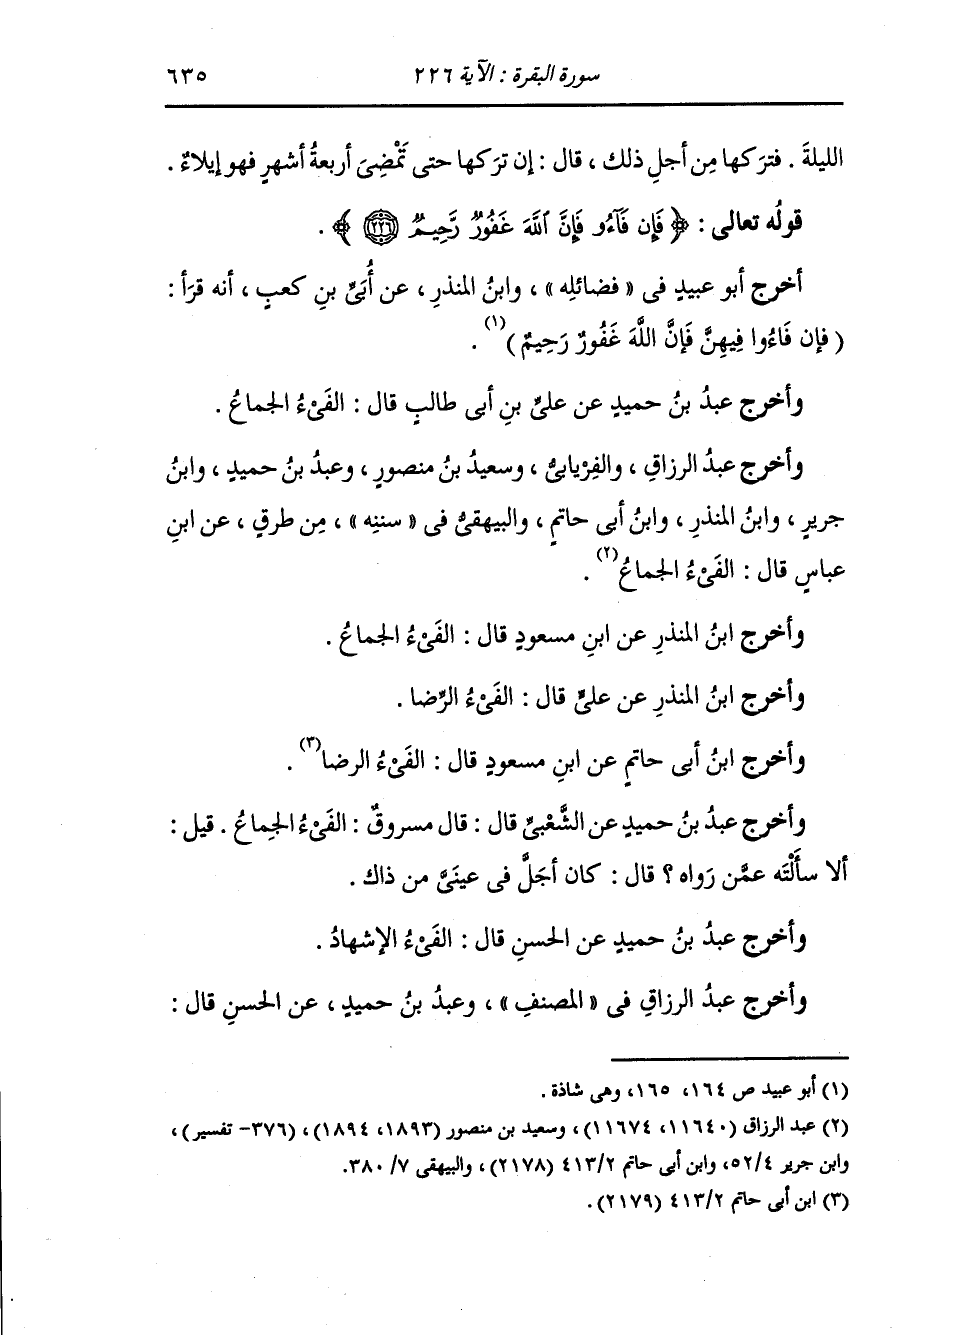 سورة البقرة : الآية ٢٢٦ ٦٣٥
الليلةَ . فترَكها مِن أجلِ ذلك ، قال : إن ترَكها حتى تَمْضِىَ أربعةُ أشهرٍ فهو إيلاءٌ .
قولُه تعالى : ﴿ فَإِن فَآءُو فَإِنَّ ٱللَّهَ غَفُورٌ رَّحِيمٌ ٢٢٦ ﴾ .
أخرج أبو عبيدٍ فى « فضائلِه » ، وابنُ المنذرِ ، عن أُبَىِّ بنِ كعبٍ ، أنه قرَأ :
( فإن فَاءُوا فِيهِنَّ فَإِنَّ اللَّهَ غَفُورٌ رَحِيمٌ )(١) .
وأخرج عبدُ بنُ حميدٍ عن علىِّ بنِ أبى طالبٍ قال : الفَىْءُ الجماعُ .
وأخرج عبدُ الرزاقِ ، والفِرْيابىُّ ، وسعيدُ بنُ منصورٍ ، وعبدُ بنُ حميدٍ ، وابنُ
جريرٍ ، وابنُ المنذرِ ، وابنُ أبى حاتمٍ ، والبيهقىُّ فى « سننِه » ، مِن طرقٍ ، عن ابنِ
عباسٍ قال : الفَىْءُ الجماعُ(٢) .
وأخرج ابنُ المنذرِ عن ابنِ مسعودٍ قال : الفَىْءُ الجماعُ .
وأخرج ابنُ المنذرِ عن علىٍّ قال : الفَىْءُ الرِّضا .
وأخرج ابنُ أبى حاتمٍ عن ابنِ مسعودٍ قال : الفَىْءُ الرضا(٣) .
وأخرج عبدُ بنُ حميدٍ عن الشَّعْبىِّ قال : قال مسروقٌ : الفَىْءُ الجِماعُ . قيل :
ألا سأَلْتَه عمَّن رَواه ؟ قال : كان أجَلَّ فى عينَىَّ من ذاك .
وأخرج عبدُ بنُ حميدٍ عن الحسنِ قال : الفَىْءُ الإشهادُ .
وأخرج عبدُ الرزاقِ فى « المصنفِ » ، وعبدُ بنُ حميدٍ ، عن الحسنِ قال :
(١) أبو عبيد ص ١٦٤، ١٦٥، وهى شاذة .
(٢) عبد الرزاق (١١٦٤٠، ١١٦٧٤)، وسعيد بن منصور (١٨٩٣، ١٨٩٤)، (٣٧٦- تفسير)،
وابن جرير ٥٢/٤، وابن أبى حاتم ٤١٣/٢ (٢١٧٨)، والبيهقى ٧/ ٣٨٠.
(٣) ابن أبى حاتم ٤١٣/٢ (٢١٧٩).